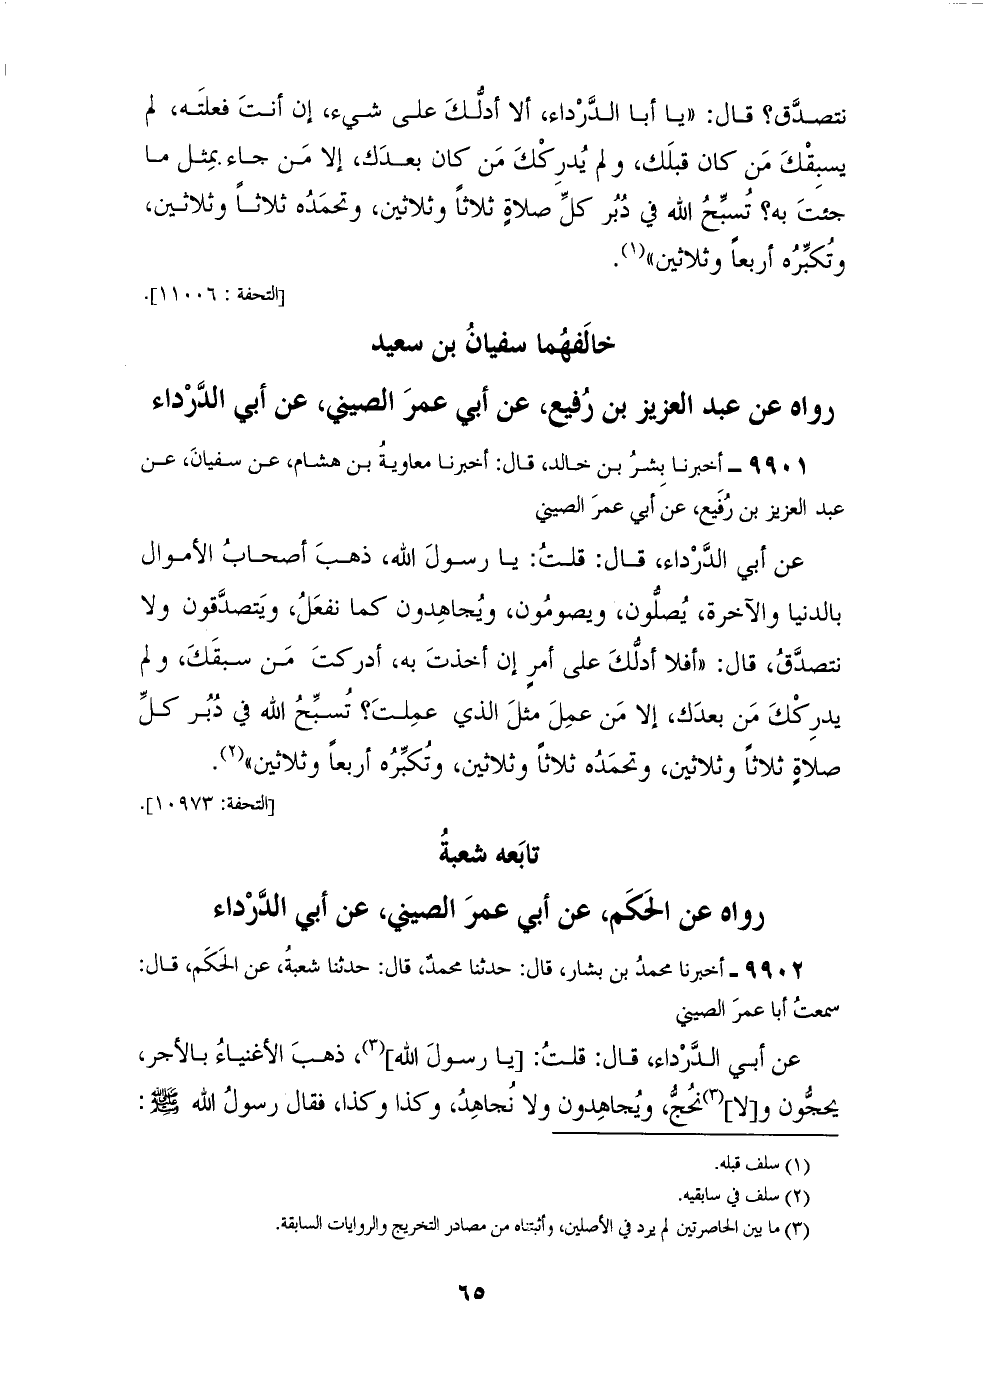 نتصدَّق؟ قال: «يا أبا الدَّرْداء، ألا أدلُّكَ على شيء، إن أنتَ فعلتَه، لم
يسبِقْكَ مَن كان قبلَك، ولم يُدرِكْكَ مَن كان بعدَك، إلا مَن جاء بمِثل ما
جئتَ به؟ تُسبِّحُ الله في دُبُر كلِّ صلاةٍ ثلاثاً وثلاثين، وتحمَدُه ثلاثاً وثلاثين،
وتُكبِّرُه أربعاً وثلاثين»(١).
[التحفة : ١١٠٠٦].
خالَفهُما سفيانُ بن سعيد
رواه عن عبد العزيز بن رُفيع، عن أبي عمرَ الصيني، عن أبي الدَّرْداء
٩٩٠١ ـ أخبرنا بِشرُ بن خالد، قال: أخبرنا معاويةُ بن هشام، عن سفيانَ، عن
عبد العزيز بن رُفَيع، عن أبي عمرَ الصيني
عن أبي الدَّرْداء، قال: قلتُ: يا رسولَ الله، ذهبَ أصحابُ الأموال
بالدنيا والآخرة، يُصلُّون، ويصومُون، ويُجاهِدون كما نفعَلُ، ويَتصدَّقون ولا
نتصدَّقُ، قال: «أفلا أدلُّكَ على أمرٍ إن أخذتَ به، أدركتَ مَن سبقَكَ، ولم
يدرِكْكَ مَن بعدَك، إلا مَن عمِلَ مثلَ الذي عمِلتَ؟ تُسبِّحُ الله في دُبُر كلِّ
صلاةٍ ثلاثاً وثلاثين، وتحمَدُه ثلاثاً وثلاثين، وتُكبِّرُه أربعاً وثلاثين»(٢).
[التحفة: ١٠٩٧٣].
تابَعه شعبةُ
رواه عن الحَكَم، عن أبي عمرَ الصيني، عن أبي الدَّرْداء
٩٩٠٢ ـ أخبرنا محمدُ بن بشار، قال: حدثنا محمدٌ، قال: حدثنا شعبةُ، عن الحَكَم، قال:
سمعتُ أبا عمرَ الصيني
عن أبي الدَّرْداء، قال: قلتُ: [يا رسولَ الله](٣)، ذهبَ الأغنياءُ بالأجر،
يحجُّون و[لا](٣)نُحجُّ، ويُجاهِدون ولا نُجاهِدُ، وكذا وكذا، فقال رسولُ الله ﷺ:
(١) سلف قبله.
(٢) سلف في سابقيه.
(٣) ما بين الحاصرتين لم يرد في الأصلين، وأثبتناه من مصادر التخريج والروايات السابقة.
٦٥